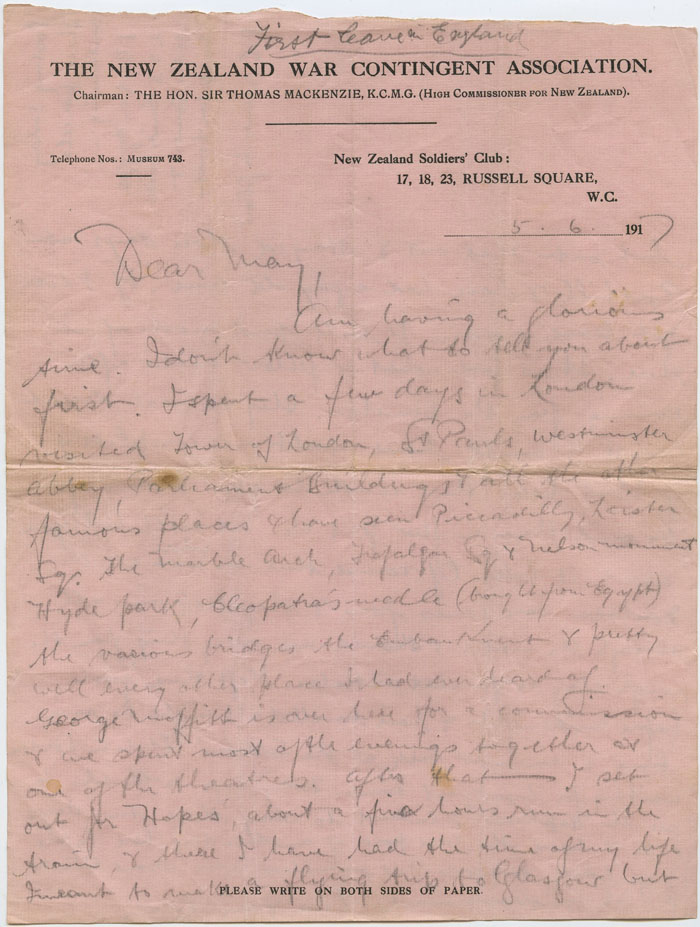 First leave in England
THE NEW ZEALAND WAR CONTINGENT ASSOCIATION.
Chairman: THE HON. SIR THOMAS MACKENZIE, K.C.M.G. (HIGH COMMISSIONER FOR NEW ZEALAND).
Telephone Nos.: MUSEUM 743.
New Zealand Soldiers' Club:
17, 18, 23, RUSSELL SQUARE,
W.C.
5. 6. 1917
Dear May,
Am having a glorious
time. I don't know what to tell you about
first. I spent a few days in London
visited Tower of London, St Pauls, Westminster
Abbey, Parliament Building, & all the other
famous places & have seen Piccadilly, Leister
Sq. The Marble Arch, Trafalgar Sq & Nelson monument
Hyde park, Cleopatra's needle (bought from Egypt)
the various bridges the Embankment & pretty
well every other place I had ever heard of.
George Moffitt is over here for a commission
& we spent most of the evenings together at
one of the theatres. After that I set
out for Hopes', about a five hours run in the
train, & there I have had the time of my life
I meant to make a flying trip to Glasgow but
PLEASE WRITE ON BOTH SIDES OF PAPER.